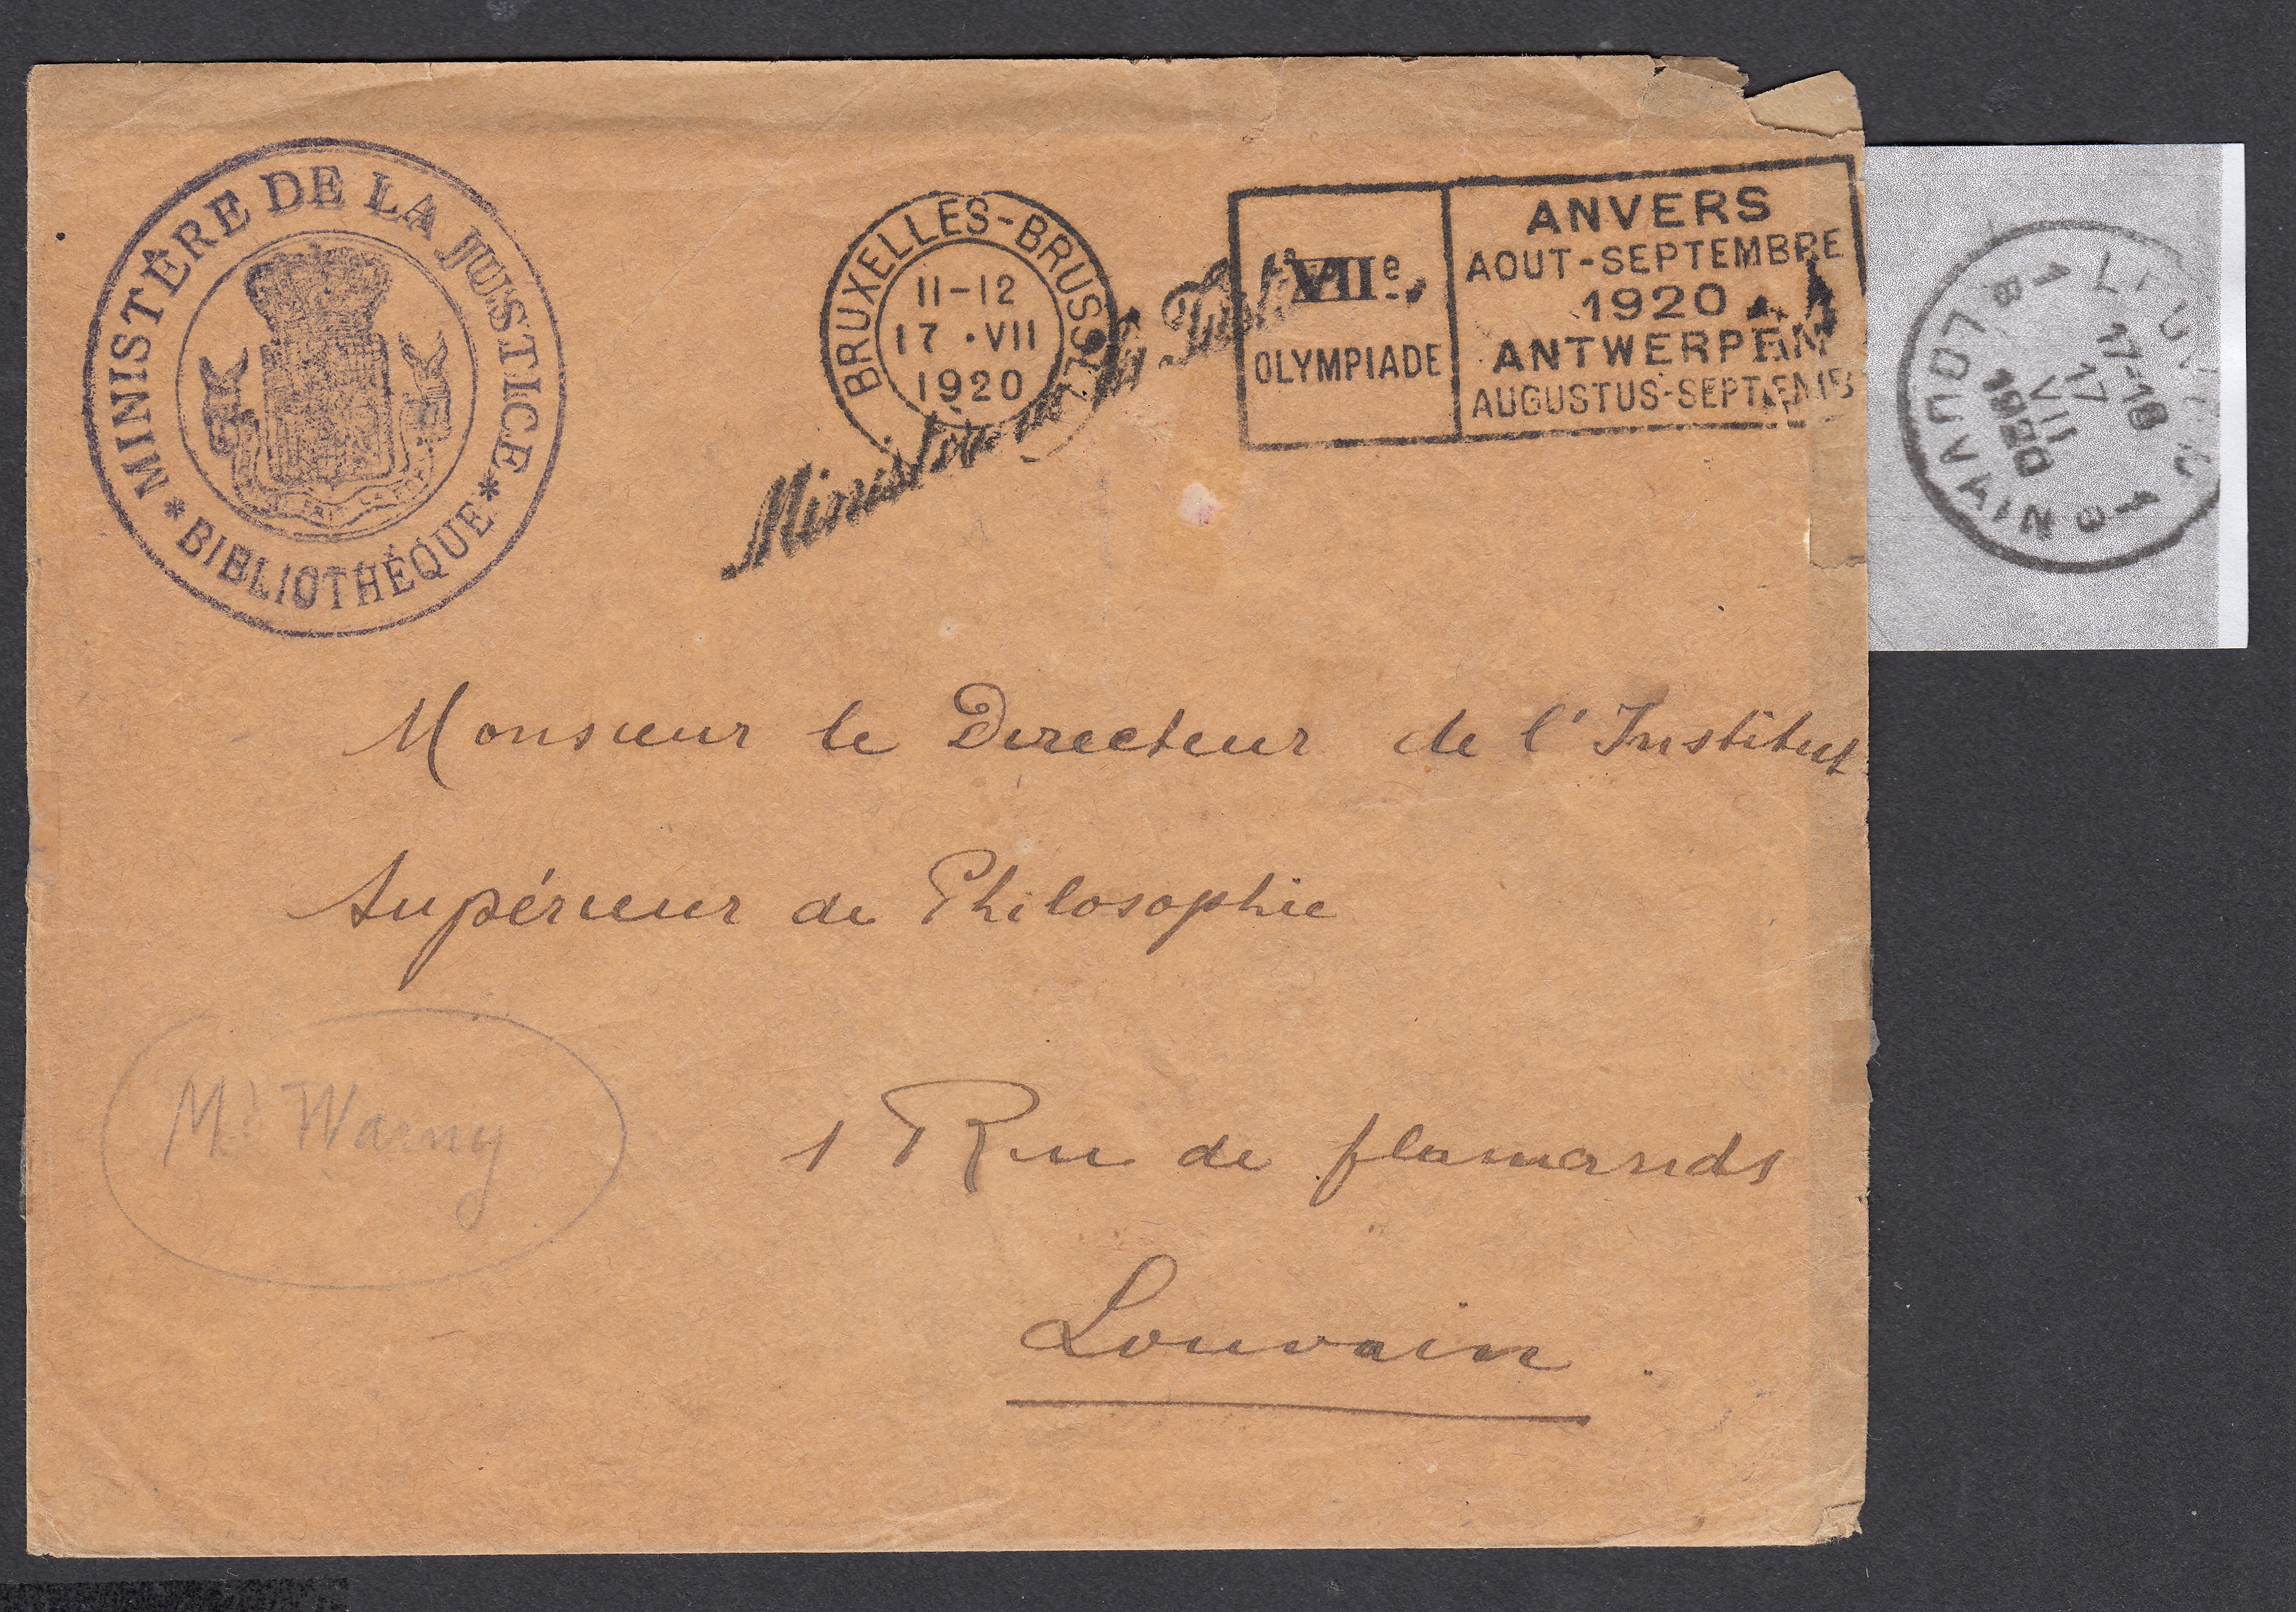 MINISTÈRE DE LA JUSTICE
* BIBLIOTHÈQUE *
BRUXELLES-BRUSSEL
11-12
17 •VII
1920
Ministère de la Justice
VIIe
OLYMPIADE
ANVERS
AOUT-SEPTEMBRE
1920
ANTWERPEN
AUGUSTUS-SEPTEMB
LEUVEN
1B
17-18
17
VII
1920
D
1B
LOUVAIN
Monsieur le Directeur de l'Institut
Supérieur de Philosophie
Mr Warny
1 Rue de flamands
Louvain